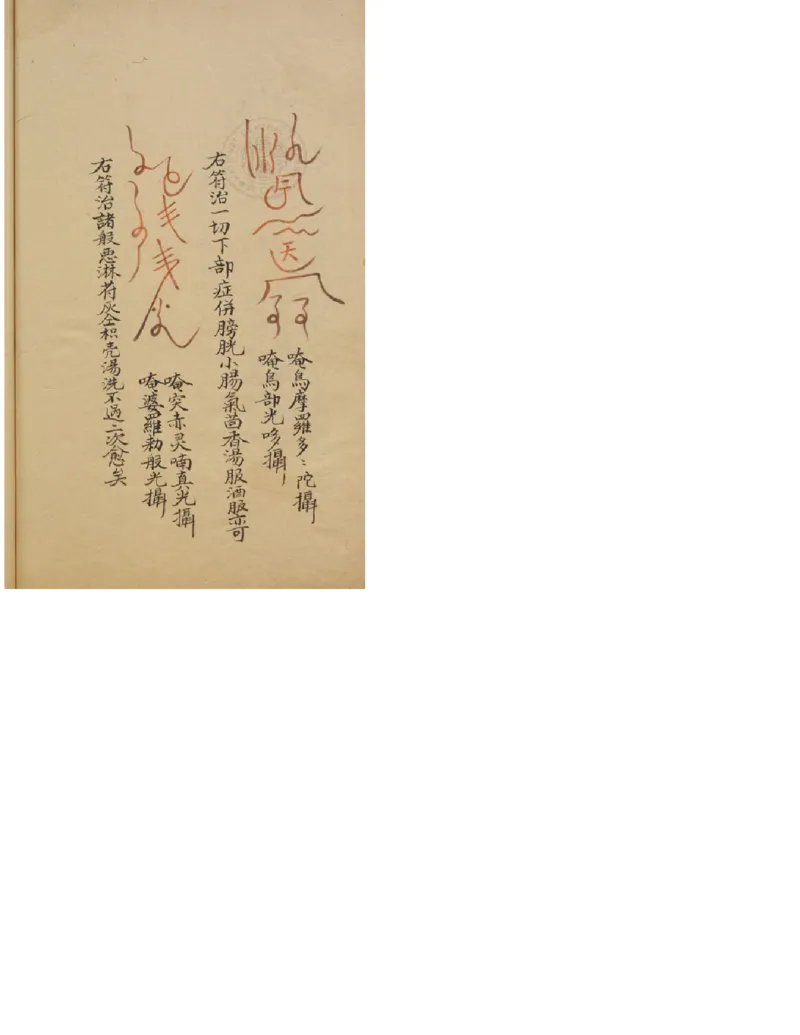 唵烏摩羅多〻陀攝
唵烏部光哆攝
右符治一切下部症併膀胱小腸氣茴香湯服酒服亦可
唵突赤灵喃真光攝
唵婆羅勅般光攝
右符治諸般悪淋符灰仝枳壳湯洗不過二次愈矣